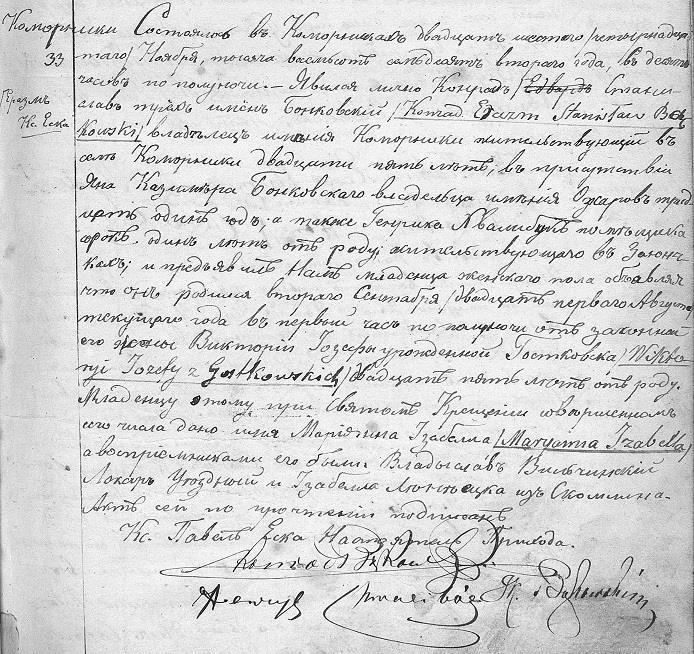 Коморники
33
Эразмъ
Кс. Еска
Состоялось въ Коморникахъ двадцать шестого /четырнадца
таго/ Ноября, тысяча восемьсотъ семьдесятъ второго года, въ десять
часовъ по полуночи. — Явился лично Конрадъ / Стани
славъ трехъ именъ Бонковскій /Konrad Erazm Stanisław Bą
kowski/ владѣлецъ имѣнія Коморники жительствующій въ
семъ Коморники двадцати пять лѣтъ, въ присутствіи
Яна Казимѣра Бонковскаго владельца имѣнія Ожаровъ трид
цать одинъ годъ; а также Генрика помѣщика
сорокъ одинъ лѣтъ отъ роду; жительствующаго въ Заюнч
кахъ; и предъявилъ Намъ младенца женскаго пола объявляя
что онъ родился втораго Сентября /двадцать перваго Августа/
текущаго года въ первый часъ по полуночи отъ законной
его жены Викторіи Іозефы урожденной Гостковска /Wikto
ryi Jozefy z Gostkowskich/ двадцать пять лѣтъ отъ роду.
Младенцу этому при Святомъ Крещеніи совершенномъ
сего числа дано имя Маріянна Изабелла /Maryanna Izabella/
а воспріемниками его были Владыславъ Вильчинскій
Лекарь Уѣздный и Изабелла изъ Скомлина.
Актъ сей по прочтеніи подписанъ
Кс. Павелъ Еска Настоятель Прихода.
Konrad Bąkowski
Henryk K. Bąkowski